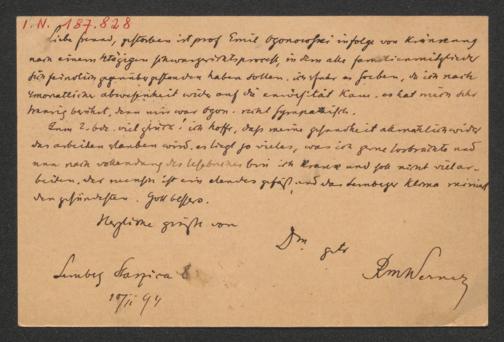 I. N. 187.828
Liebe freund, gestorben ist prof Emil Ogonowski infolge von Kränkung
nach einem tägigen schwurgerichtsprocess, in dem alle familienmitglieder
sich feindlich gegenüber gestanden haben sollen. ich erfuhr es soeben, da ich nach
monatlicher abwesenheit wider auf die universität kam. es hat mich sehr
traurig berührt, denn mir war Ogon. recht sympathisch.
Zum 2. bde. viel glück! ich hoffe, dass meine gesundheit allmählich wider
das arbeiten erlauben wird. es liegt so vieles, was ich gerne vorbrächte und
nun nach vollendung des lesebuches bin ich krank und soll nicht viel ar-
beiten. der mensch ist ein elendes gefäss, und das Lemberger klima ruinirt
den gesündesten. Gott bessers.
Herzliche grüsse von
Dm. geb
RMWerner
Lemberg 8
10/II 94